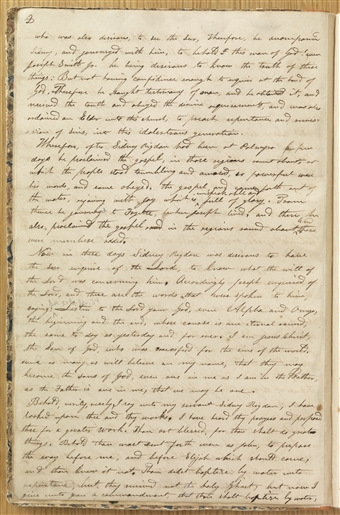 2
who was also desirous, to see the Seer, Therefore, he accompanied
Sidney, and journeyed with him, to behold this man of God, even
Joseph Smith Jr. he being desirous to know the truth of these
things: But not having confidence enough to inquire at the hand of
God, Therefore he sought testimony of man, and he obtained it, and
received the truth and obeyed the divine requirements, and was also
ordained an Elder unto this church to preach repentance and
of sins, unto this idolatrous generation.
Wherefore, after Sidney Rigdon had been at Palmyra few
days he proclaimed the gospel, in those regions round about, at
which the people stood trembling and amazed, so powerful were
his words, and some obeyed, the gospel, and came forth out of
the water, rejoicing with joy which is unspeakable and full of glory. From
thence he journeyed to Fayette, and there
also, proclaimed the gospel, and in the regions round about and there
were members added.
Now in these days Sidney Rigdon was desirous to have
the Seer enquire of the Lord, to know what the will of
the Lord was concerning him, Accordingly Joseph enquired of
the Lord, and these are the words that were spoken to him,
saying: Listen to the Lord your God, even Alpha and Omega,
the beginning and the end, whose course is one eternal round,
the same to day as yesterday and for ever. I am Jesus Christ,
the Son of God, who was crucified for the sins of the world,
even as many as will believe on my name, that they may
become the sons of God, even one in me as I am in the Father,
as the Father is one in me, that we may be one.
Behold, verily, verily I say unto my servant Sidney Rigdon, I have
looked upon thee and thy works. I have heard thy prayers and prepared
thee for a greater work. Thou art blessed, for thou shalt do great
things. Behold thou wast sent forth even as John, to prepare
the way before me, and before Elijah which should come,
and thou knew it not. Thou didst baptize by water unto
repentance, but they received not the holy Ghost; but now I
give unto you a commandment, that thou shalt baptize by water,